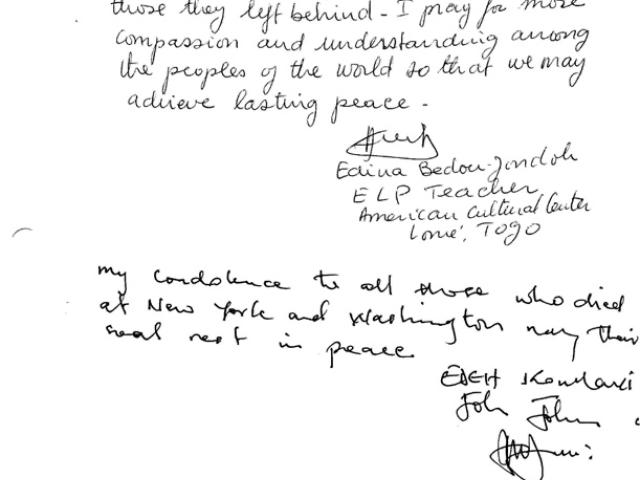 those they left behind - I pray for more
compassion and understanding among
the peoples of the world so that we may
achieve lasting peace -
Edina Bedou-
ELP Teacher
American Cultural Center
Lomé, Togo
my condolence to all those who died
at New York and Washington may their
soul rest in peace
EDEH
John